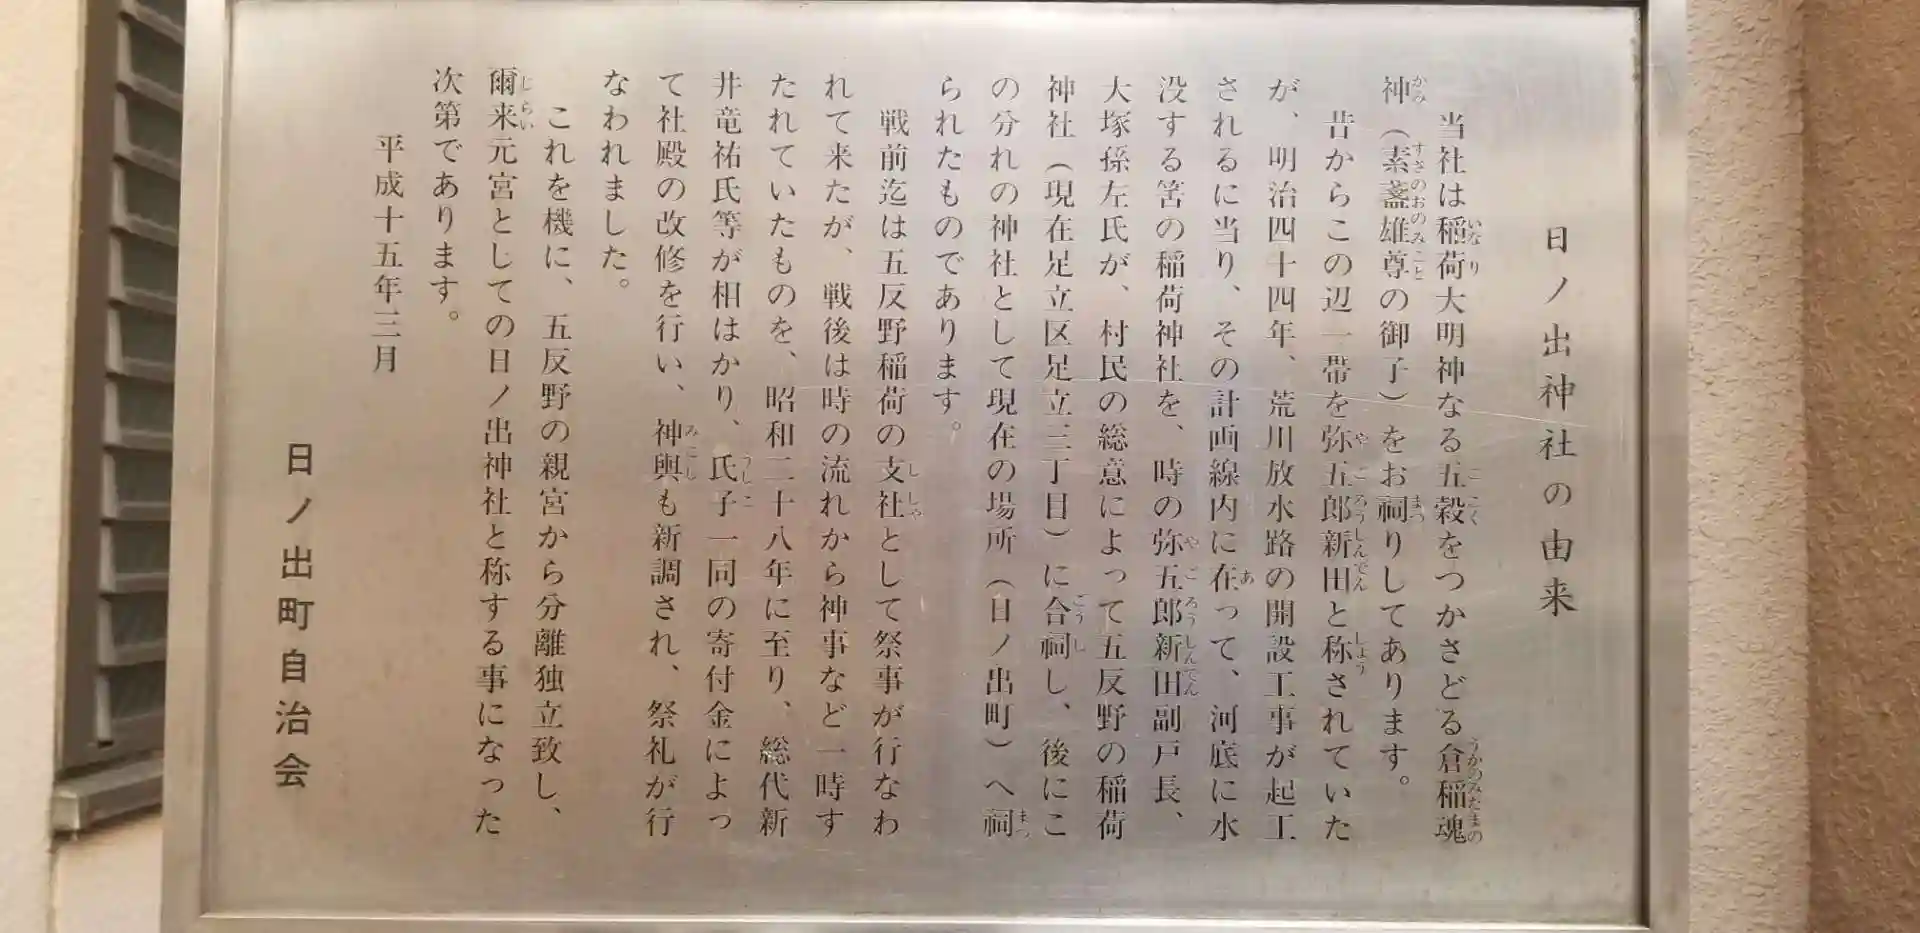 日ノ出神社の由来
当社は稲荷大明神なる五穀をつかさどる倉稲魂
神（素盞雄尊の御子）をお祠りしてあります。
昔からこの辺一帯を弥五郎新田と称されていた
が、明治四十四年、荒川放水路の開設工事が起工
されるに当り、その計画線内に在って、河底に水
没する筈の稲荷神社を、時の弥五郎新田副戸長、
大塚孫左氏が、村民の総意によって五反野の稲荷
神社（現在足立区足立三丁目）に合祠し、後にこ
の分れの神社として現在の場所（日ノ出町）へ祠
られたものであります。
戦前迄は五反野稲荷の支社として祭事が行なわ
れて来たが、戦後は時の流れから神事など一時す
たれていたものを、昭和二十八年に至り、総代新
井竜祐氏等が相はかり、氏子一同の寄付金によっ
て社殿の改修を行い、神輿も新調され、祭礼が行
なわれました。
これを機に、五反野の親宮から分離独立致し、
爾来元宮としての日ノ出神社と称する事になった
次第であります。
平成十五年三月
日ノ出町自治会